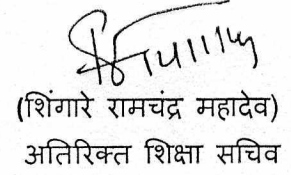 (शिंगारे रामचंद्र महादेव)
अतिरिक्त शिक्षा सचिव